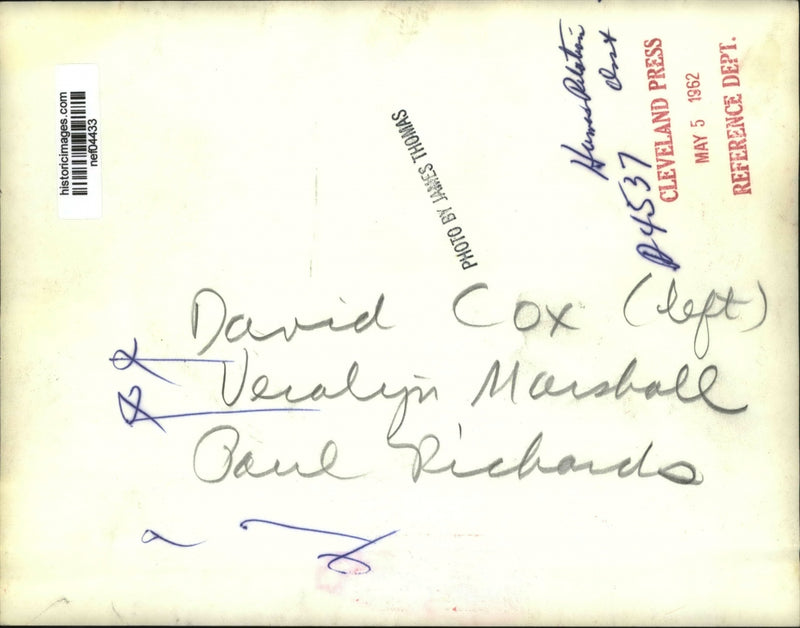 historicimages.com
nef04433
PHOTO BY JAMES THOMAS
Human Relation
D4537
CLEVELAND PRESS
MAY 5 1962
REFERENCE DEPT.
David Cox (left)
Veralyn Marshall
Paul Richards